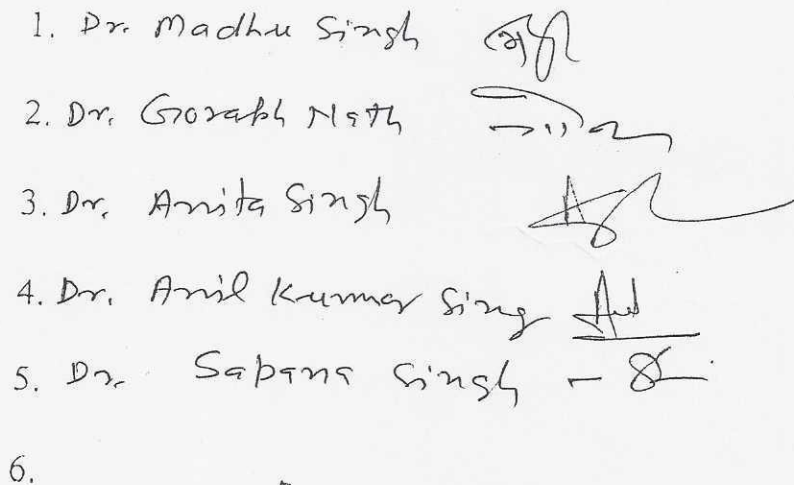 1. Dr. Madhu Singh
2. Dr. Gorakh Nath
3. Dr. Anita Singh
4. Dr. Anil Kumar Sing
5. Dr. Sapana Singh -
6.